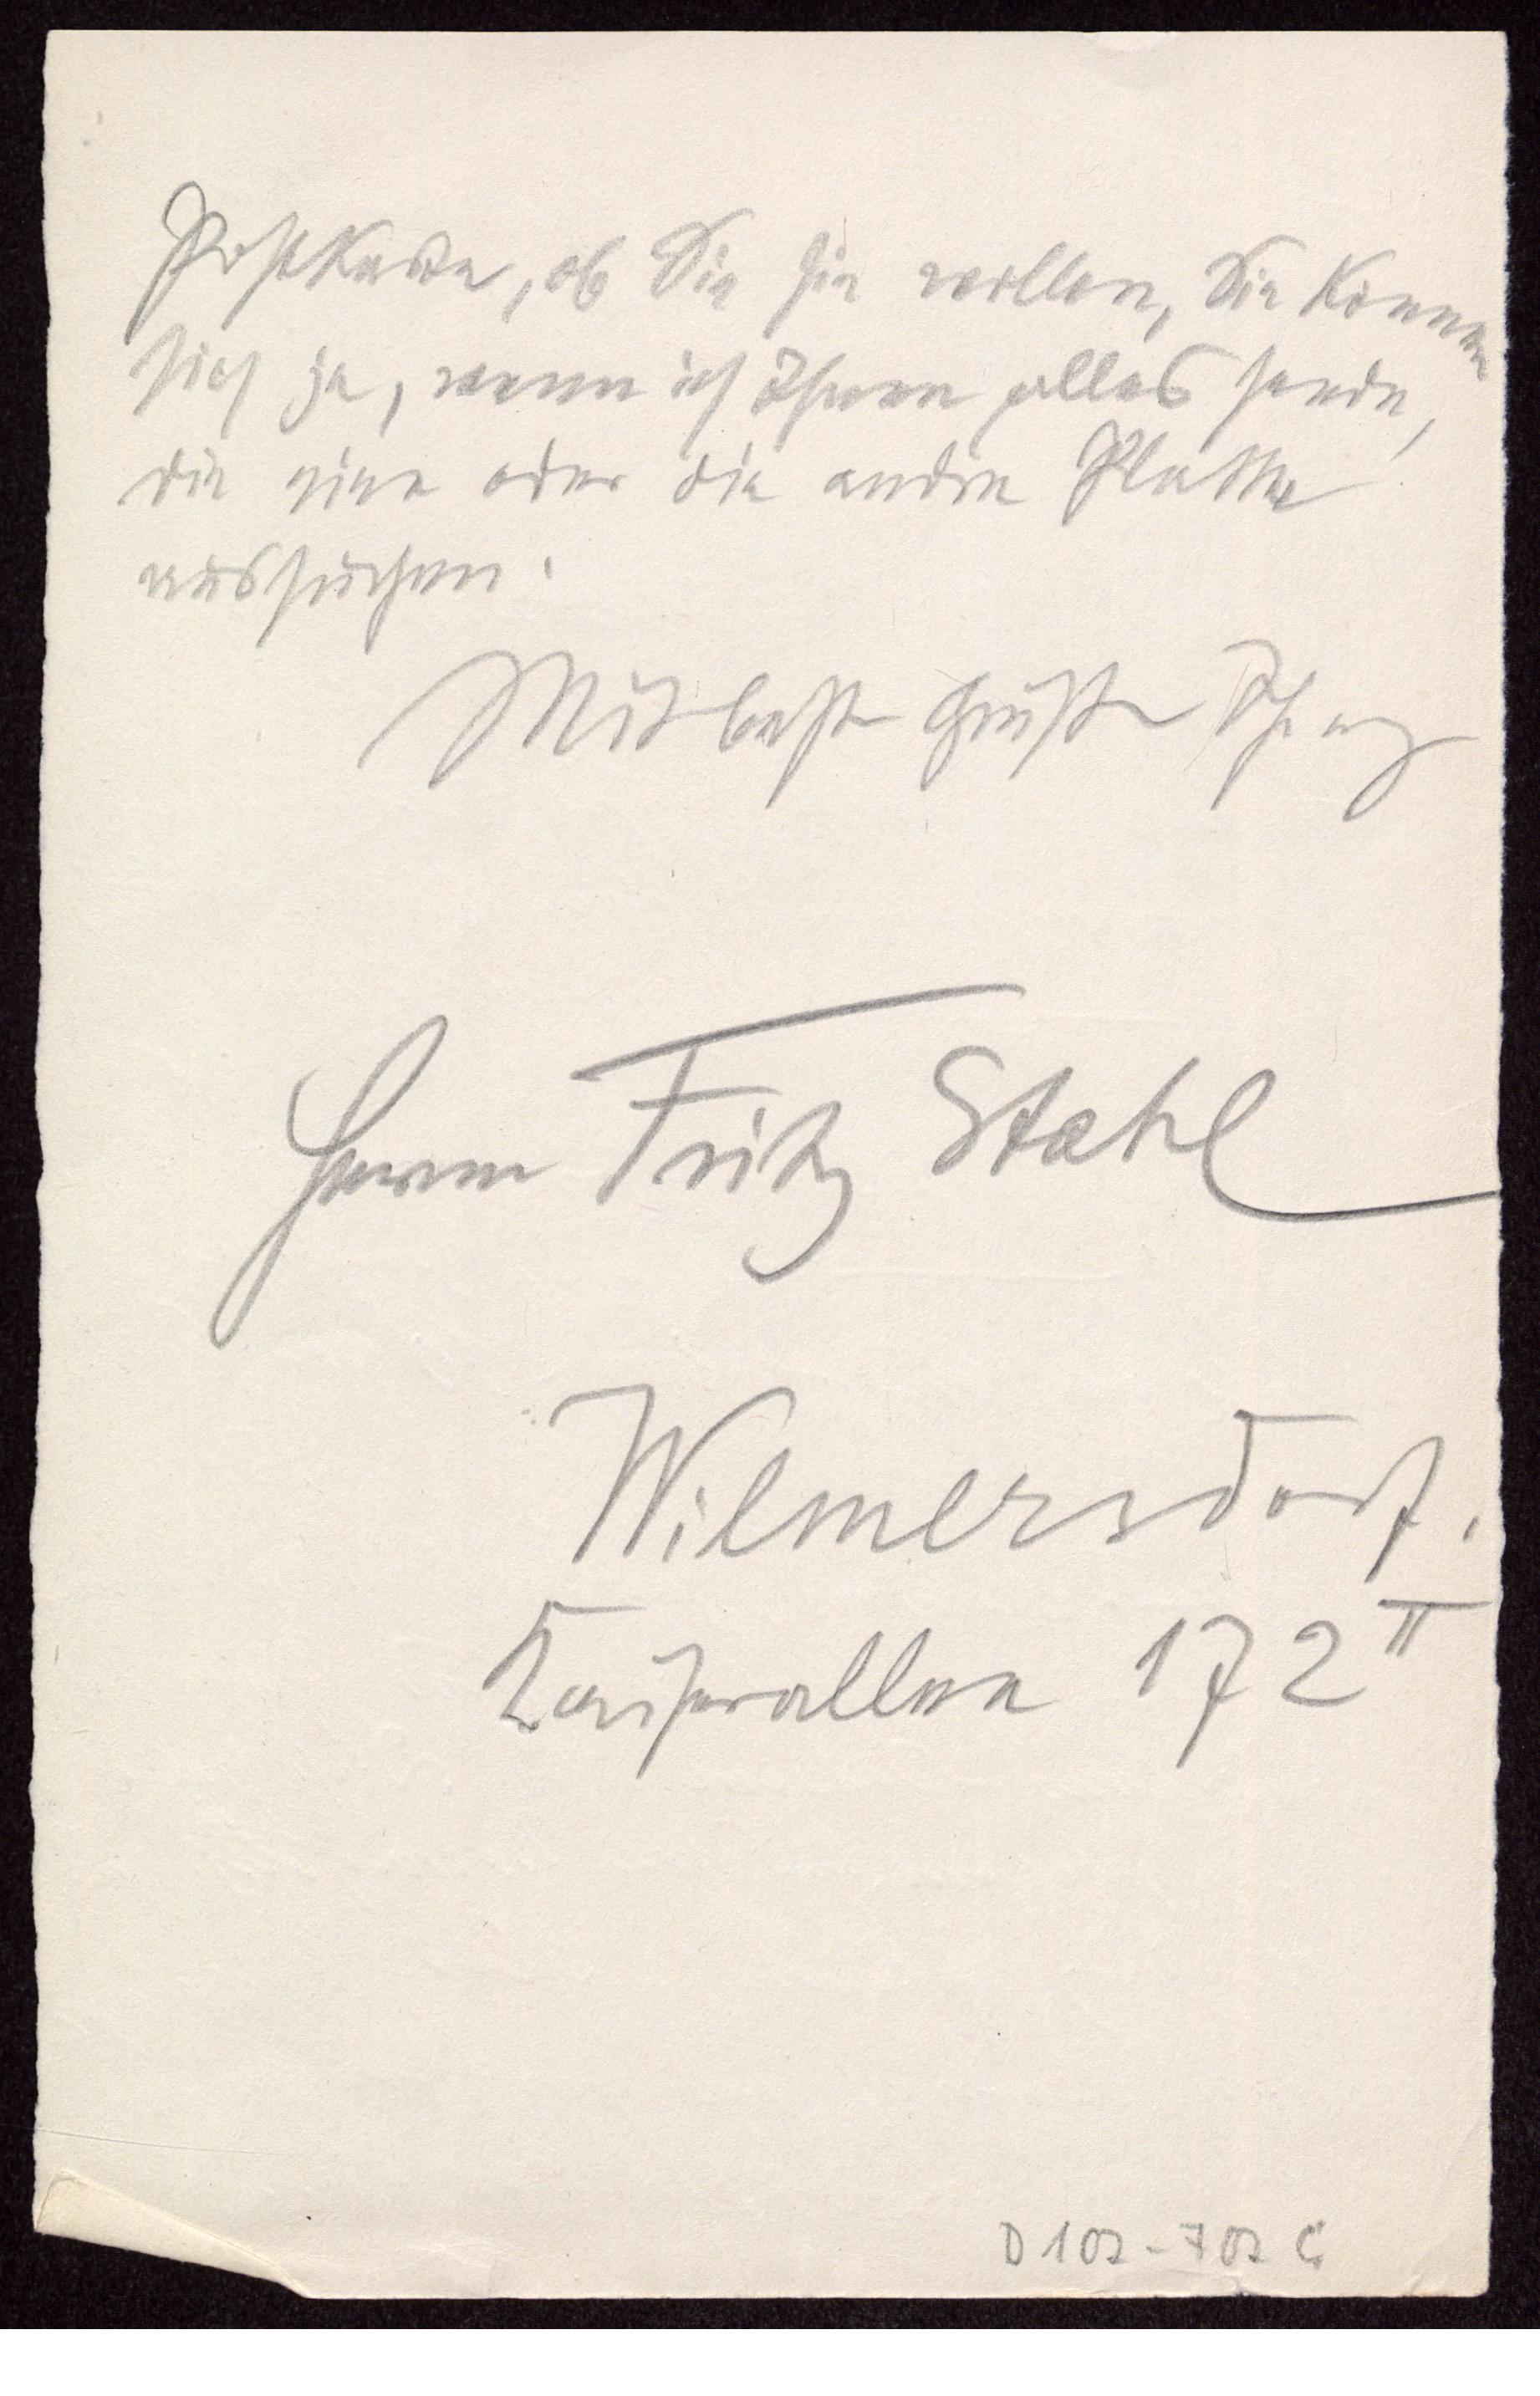 Postkarte, ob Sie sie wollen, Sie können
sich ja, wenn ich Ihnen alles sende,
die eine oder die andre Platte
aussuchen.
Mit besten Grüßen Ihr
Herrn Fritz Stahl
Wilmersdorf.
Kaiserallee 172 II
D 102-702 C